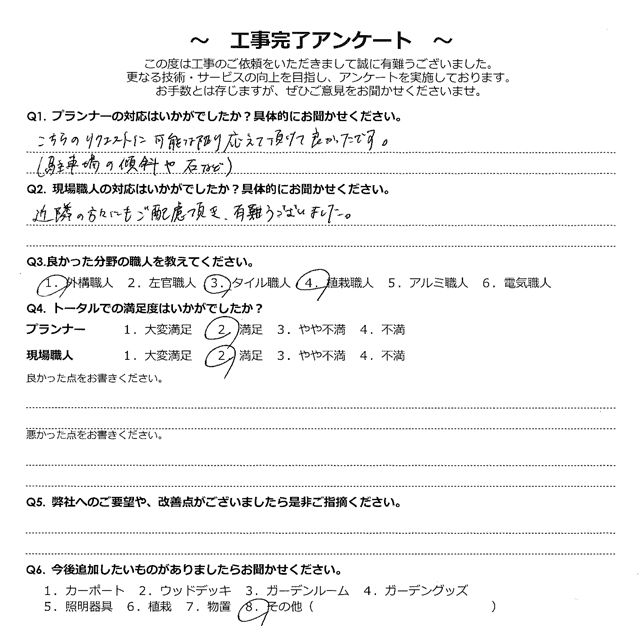 ～ 工事完了アンケート ～
この度は工事のご依頼をいただきまして誠に有難うございました。
更なる技術・サービスの向上を目指し、アンケートを実施しております。
お手数とは存じますが、ぜひご意見をお聞かせくださいませ。
Q1. プランナーの対応はいかがでしたか？具体的にお聞かせください。
こちらのリクエストに可能な限り応えて頂けて良かったです。
(駐車場の傾斜や石など)
Q2. 現場職人の対応はいかがでしたか？具体的にお聞かせください。
近隣の方々にもご配慮頂き、有難うございました。
Q3.良かった分野の職人を教えてください。
1. 外構職人 2. 左官職人 3. タイル職人 4. 植栽職人 5. アルミ職人 6. 電気職人
Q4. トータルでの満足度はいかがでしたか？
プランナー 1. 大変満足 2. 満足 3. やや不満 4. 不満
現場職人 1. 大変満足 2. 満足 3. やや不満 4. 不満
良かった点をお書きください。
悪かった点をお書きください。
Q5. 弊社へのご要望や、改善点がございましたら是非ご指摘ください。
Q6. 今後追加したいものがありましたらお聞かせください。
1. カーポート 2. ウッドデッキ 3. ガーデンルーム 4. ガーデングッズ
5. 照明器具 6. 植栽 7. 物置 8. その他（ ）